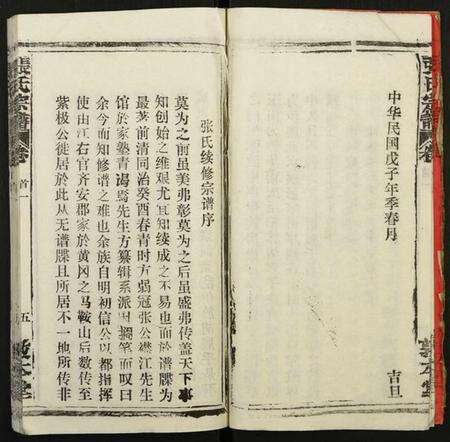 張氏宗譜
卷
中华民国戊子年季春月
吉旦
敦本堂
张氏续修宗谱序
莫为之前虽美弗彰莫为之后虽盛弗传盖天下事
知创始之维艰尤宜知续成之不易也而於谱牒为
最著前清同治癸酉春青时方弱冠张公襟江先生
馆於家塾青谒先生方纂辑系派因搁笔而叹曰
余今而知修谱之难也余族自明初信公以都指挥
使由江右官齐安郡家於黄冈之马鞍山后数传至
紫极公徙居於此从无谱牒且所居不一地所传非
張氏宗譜
卷
首一
五
敦本堂